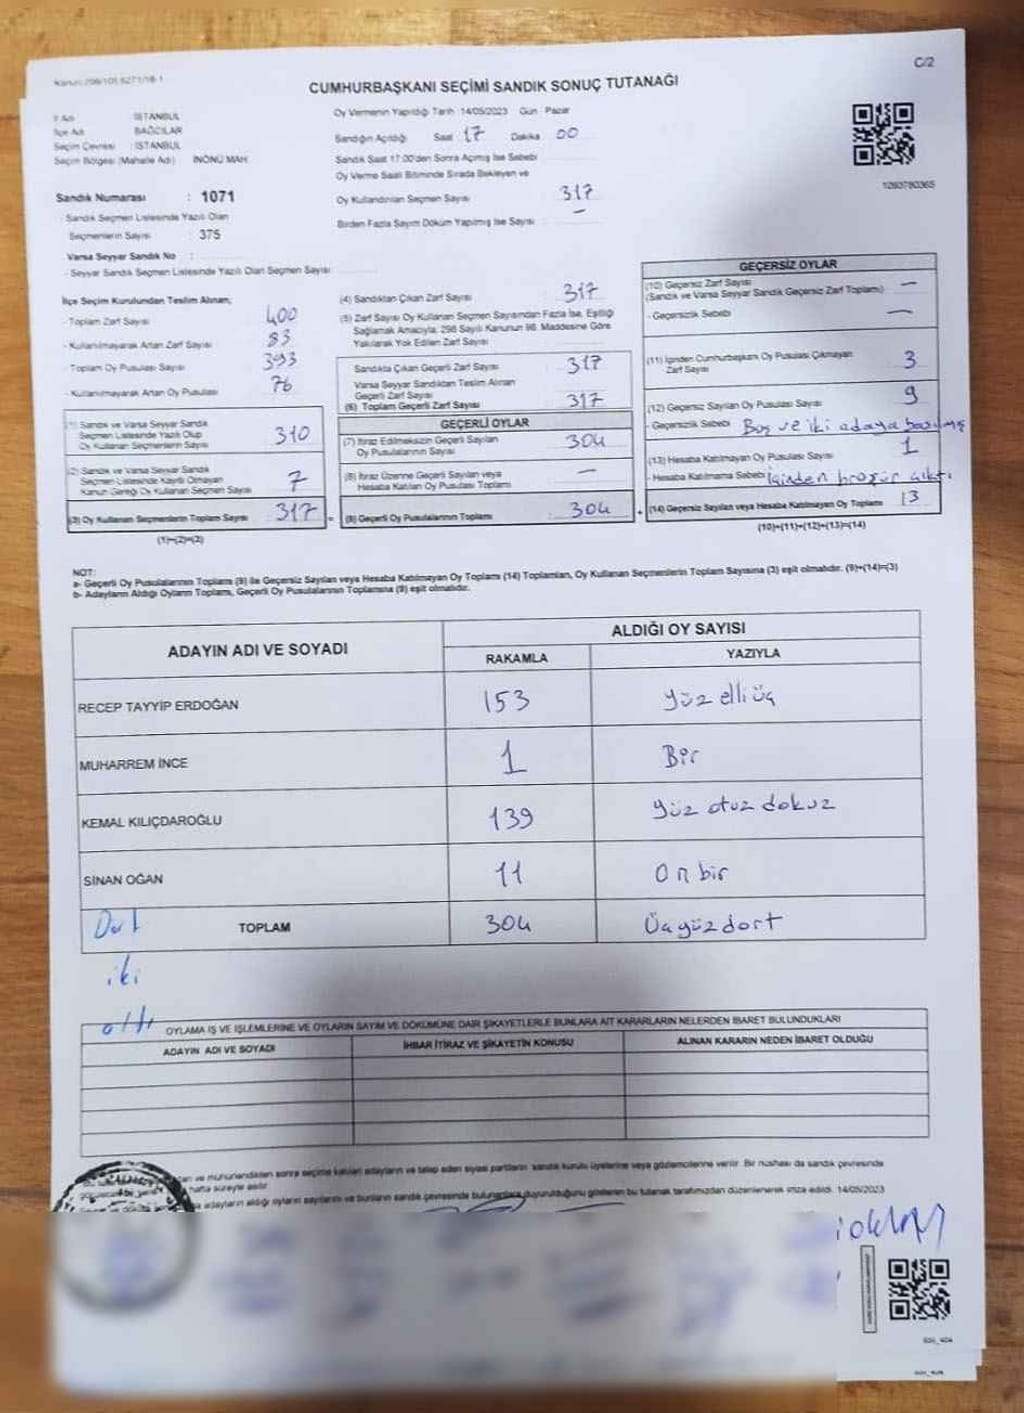 C/2
CUMHURBAŞKANI SEÇİMİ SANDIK SONUÇ TUTANAĞI
İl Adı : İSTANBUL
İlçe Adı BAĞCILAR
Seçim Çevresi : İSTANBUL
Seçim Bölgesi (Mahalle Adı) İNÖNÜ MAH.
Sandık Numarası : 1071
- Sandık Seçmen Listesinde Yazılı Olan
Seçmenlerin Sayısı : 375
Varsa Seyyar Sandık No :
- Seyyar Sandık Seçmen Listesinde Yazılı Olan Seçmen Sayısı
Oy Vermenin Yapıldığı Tarih :14/05/2023 Gün : Pazar
Sandığın Açıldığı Saat 17 Dakika 00
Sandık Saat 17:00'den Sonra Açılmış İse Sebebi
Oy Verme Saati Bitiminde Sırada Bekleyen ve
Oy Kullandırılan Seçmen Sayısı 317
Birden Fazla Sayım Döküm Yapılmış İse Sayısı —
1260780365
İlçe Seçim Kurulundan Teslim Alınan;
- Toplam Zarf Sayısı 400
- Kullanılmayarak Artan Zarf Sayısı 83
- Toplam Oy Pusulası Sayısı 393
- Kullanılmayarak Artan Oy Pusulası 76
(1) Sandık ve Varsa Seyyar Sandık
Seçmen Listesinde Yazılı Olup
Oy Kullanan Seçmenlerin Sayısı 310
(2) Sandık ve Varsa Seyyar Sandık
Seçmen Listesinde Kayıtlı Olmayan
Kanun Gereği Oy Kullanan Seçmen Sayısı 7
(3) Oy Kullanan Seçmenlerin Toplam Sayısı 317 =
(1)+(2)=(3)
(4) Sandıktan Çıkan Zarf Sayısı 317
(5) Zarf Sayısı Oy Kullanan Seçmen Sayısından Fazla İse, Eşitliği
Sağlamak Amacıyla, 298 Sayılı Kanunun 98. Maddesine Göre
Yakılarak Yok Edilen Zarf Sayısı
Sandıkta Çıkan Geçerli Zarf Sayısı 317
Varsa Seyyar Sandıktan Teslim Alınan
Geçerli Zarf Sayısı
(6) Toplam Geçerli Zarf Sayısı 317
GEÇERLİ OYLAR
(7) İtiraz Edilmeksizin Geçerli Sayılan
Oy Pusulasının Sayısı 304
(8) İtiraz Üzerine Geçerli Sayılan veya
Hesaba Katılan Oy Pusulası Toplamı —
(9) Geçerli Oy Pusulalarının Toplamı 304 +
GEÇERSİZ OYLAR
(10) Geçersiz Zarf Sayısı —
(Sandık ve Varsa Seyyar Sandık Geçersiz Zarf Toplamı)
- Geçersizlik Sebebi —
(11) İçinden Cumhurbaşkanı Oy Pusulası Çıkmayan
Zarf Sayısı 3
(12) Geçersiz Sayılan Oy Pusulası Sayısı 9
- Geçersizlik Sebebi Boş ve iki adaya basılmış
(13) Hesaba Katılmayan Oy Pusulası Sayısı 1
- Hesaba Katılmama Sebebi İçinden broşür çıktı
(14) Geçersiz Sayılan veya Hesaba Katılmayan Oy Toplamı 13
(10)+(11)+(12)+(13)=(14)
NOT:
a- Geçerli Oy Pusulalarının Toplamı (9) ile Geçersiz Sayılan veya Hesaba Katılmayan Oy Toplamı (14) Toplamları, Oy Kullanan Seçmenlerin Toplam Sayısına (3) eşit olmalıdır. (9)+(14)=(3)
b- Adayların Aldığı Oyların Toplamı, Geçerli Oy Pusulalarının Toplamına (9) eşit olmalıdır.
ADAYIN ADI VE SOYADI
ALDIĞI OY SAYISI
RAKAMLA YAZIYLA
RECEP TAYYİP ERDOĞAN 153 yüz elli üç
MUHARREM İNCE 1 Bir
KEMAL KILIÇDAROĞLU 139 yüz otuz dokuz
SİNAN OĞAN 11 On bir
Dört TOPLAM 304 Üçyüzdört
iki
altı
OYLAMA İŞ VE İŞLEMLERİNE VE OYLARIN SAYIM VE DÖKÜMÜNE DAİR ŞİKAYETLERLE BUNLARA AİT KARARLARIN NELERDEN İBARET BULUNDUKLARI
ADAYIN ADI VE SOYADI İHBAR İTİRAZ VE ŞİKAYETİN KONUSU ALINAN KARARIN NEDEN İBARET OLDUĞU
ve mühürlendikten sonra seçime katılan adayların ve talep eden siyasi partilerin sandık kurulu üyelerine veya gözlemcilerine verilir. Bir nüshası da sandık çevresinde
hafta süreyle asılır.
adayların aldığı oyların sayılarını ve bunların sandık çevresinde bulunanlara duyurulduğunu gösteren bu tutanak tarafımızdan düzenlenerek imza edildi. 14/05/2023